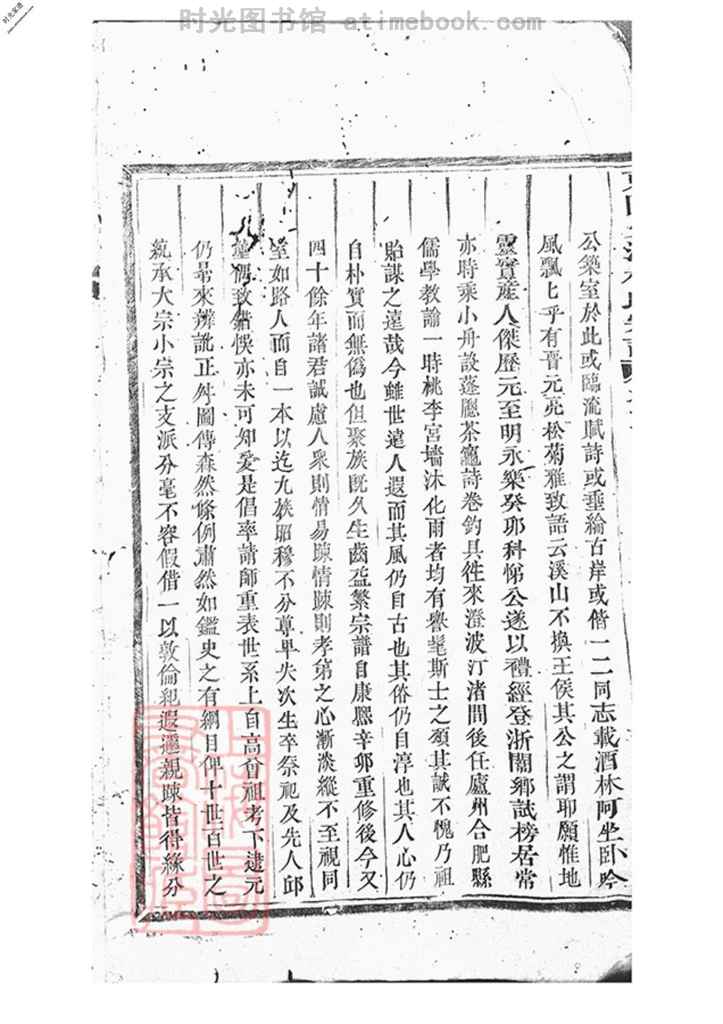 时光图书馆 - atimebook.com
公築室於此或臨流賦詩或垂綸古岸或偕一二同志載酒林阿坐卧吟
風飄飄乎有晋元亮松菊雅致語云溪山不換王侯其公之謂耶願惟地
靈實産人傑歷元至明永樂癸卯科悌公遂以禮經登浙闈鄉試榜居常
亦時乘小舟設蓬廳茶竈詩卷釣具徃來澄波汀渚間後任廬州合肥縣
儒學教諭一時桃李宮墻沐化雨者均有譽髦斯士之頌其誠不愧乃祖
貽謀之遠哉今雖世遠人遐而其風仍自古也其俗仍自淳也其人心仍
自朴實而無僞也但聚族既久生齒益繁宗譜自康熙辛卯重修後今又
四十餘年諸君誠慮人衆則情易踈情踈則孝弟之心漸淡縱不至視同
室如路人而自一本以迄九族昭穆不分尊卑失次生卒祭祀及先人邱
壠稱致錯悞亦未可知爰是倡率請師重表世系上自高曾祖考下逮元
仍昆來辨訛正舛圖傳森然條例肅然如鑑史之有綱目俾十世百世之
統承大宗小宗之支派分毫不容假借一以敦倫紀遐邇親踈皆得緣分